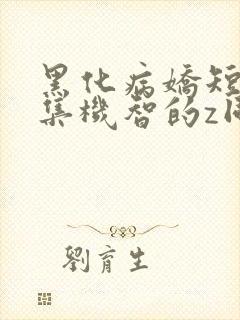 黑化病嬌短
集機智的z
劉育生